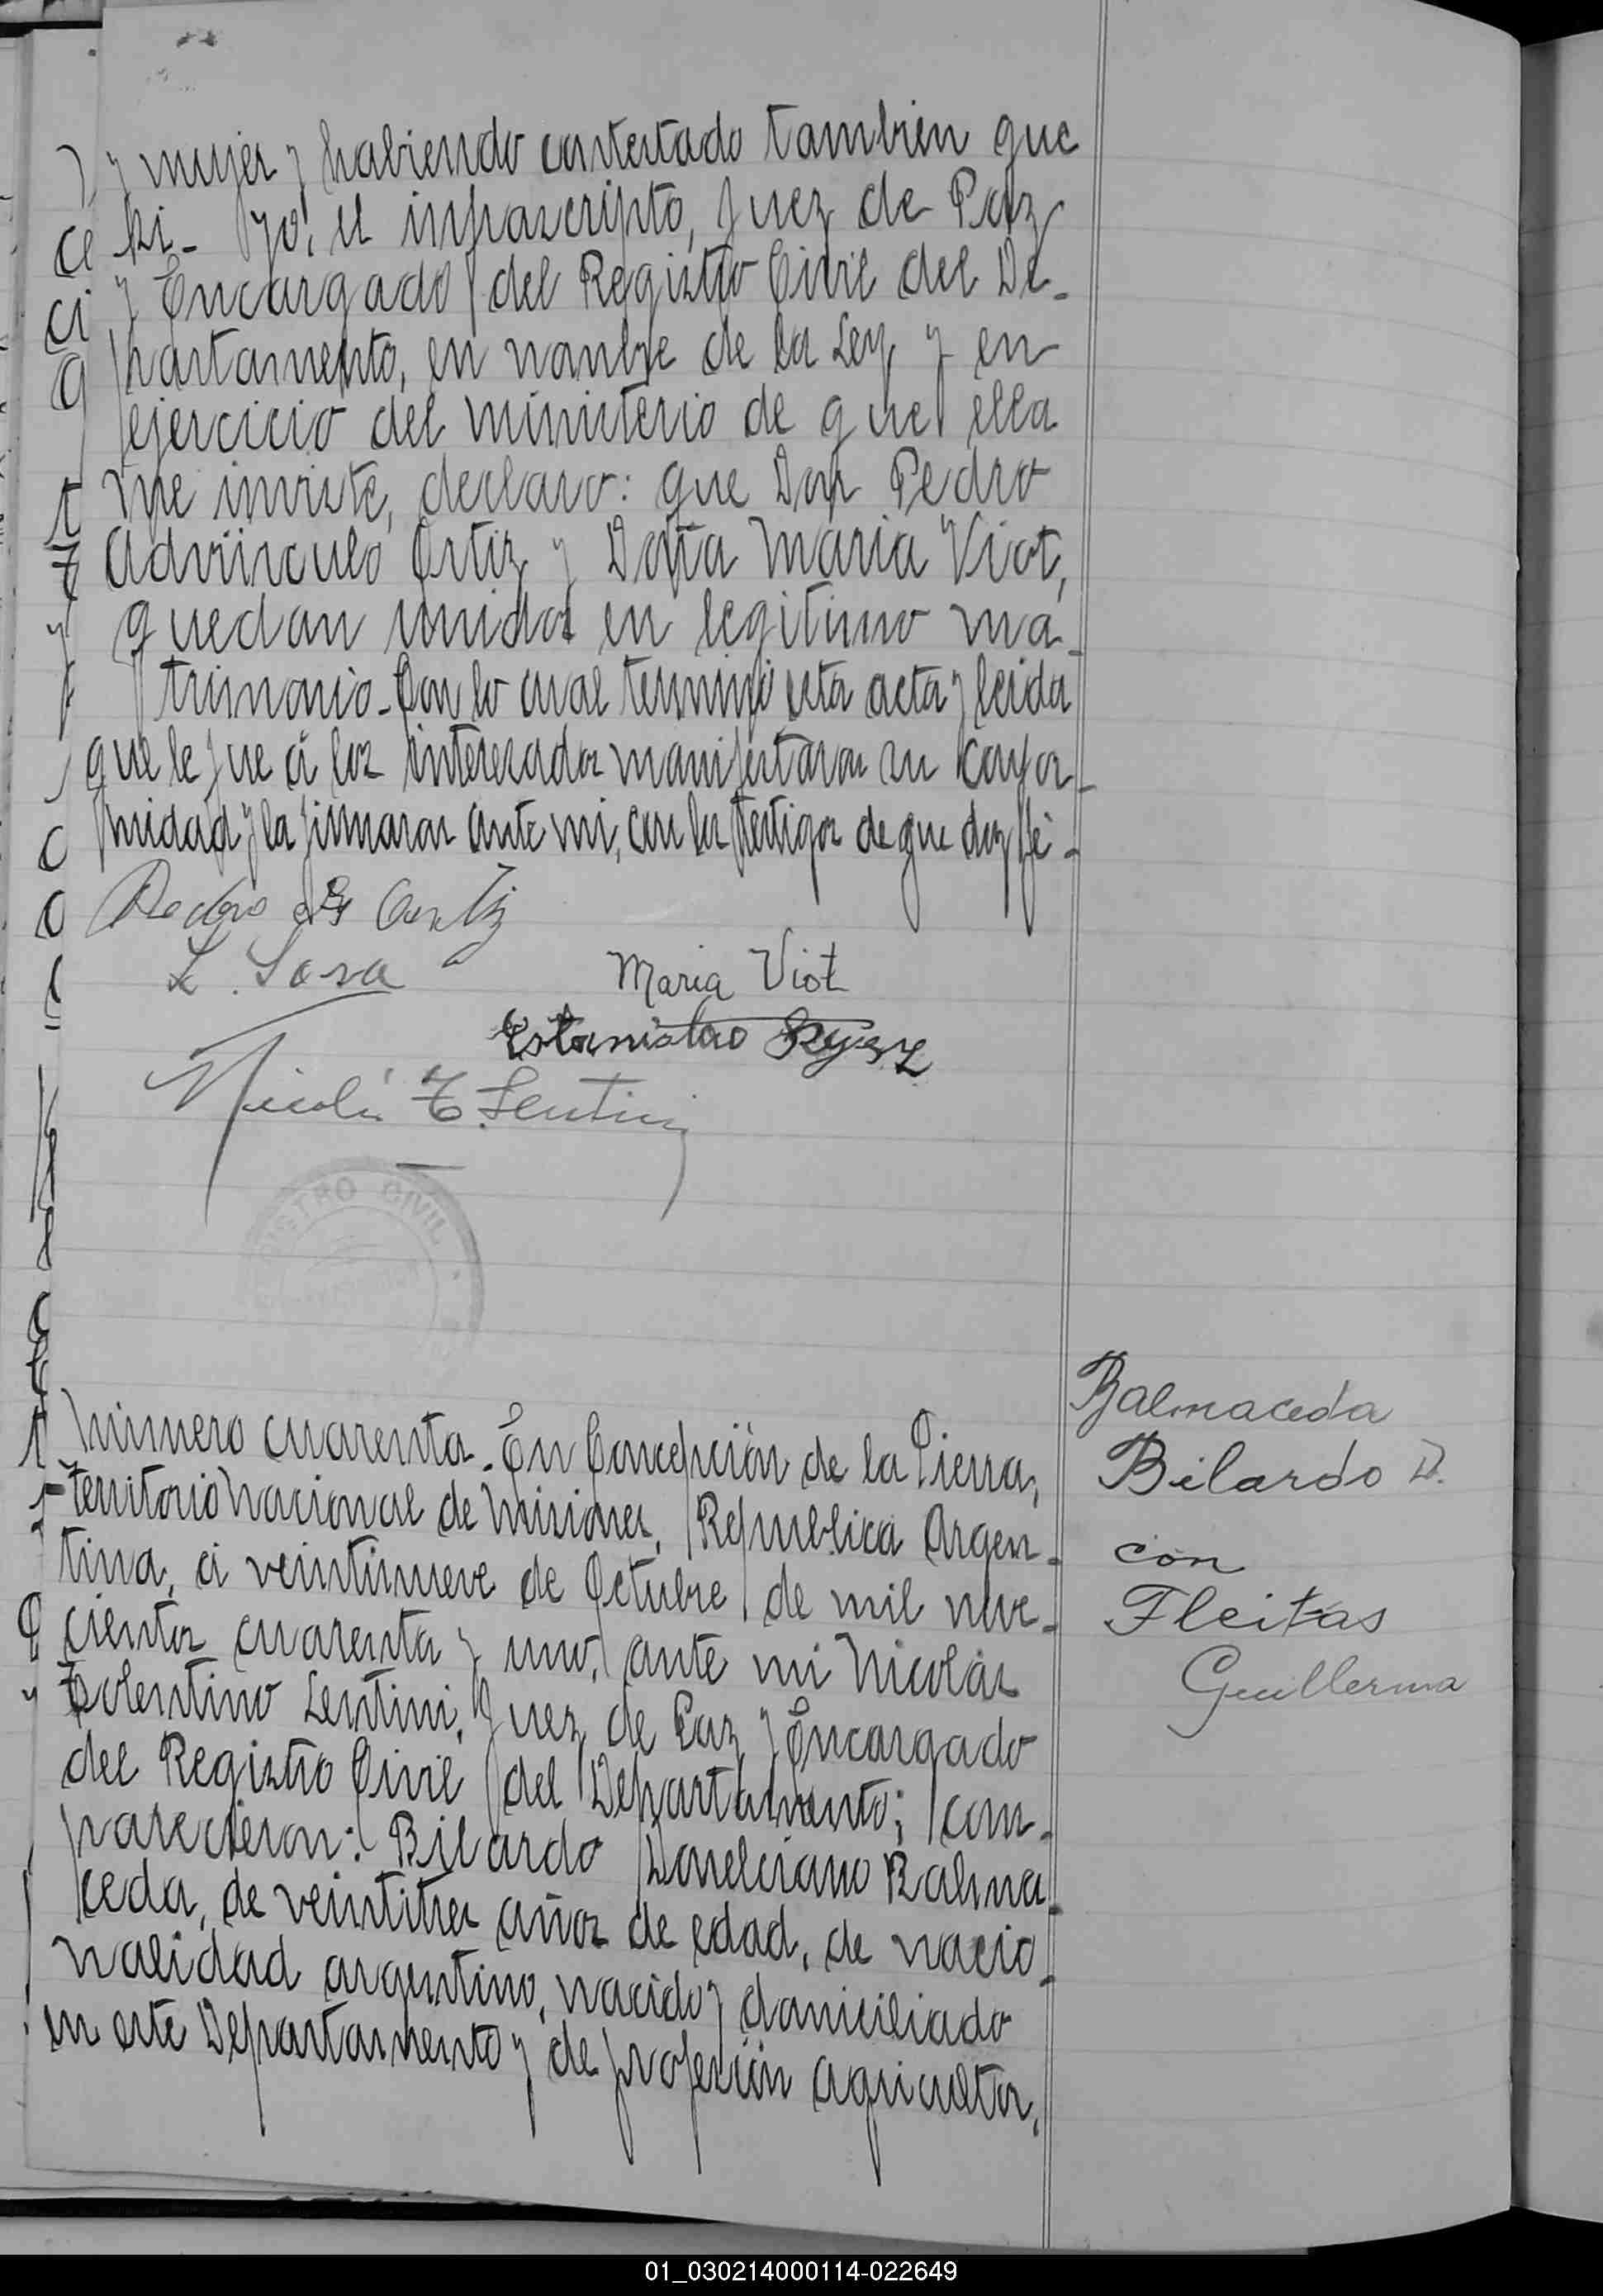 y mujer y habiendo contestado tambien que
si - Yo, el infrascripto, Juez de Paz
y Encargado del Registro Civil del De-
partamento, en nombre de la Ley y en
ejercicio del ministerio de que ella
me inviste, declaro: que Don Pedro
Advíinculo Ortiz y Doña Maria Viot,
quedan unidos en legitimo ma-
trimonio - Con lo cual terminó esta acta y leida
que le fue á los interesados manifestaron su confor-
midad y la firmaron ante mi, con los testigos de que doy fé -
Pedro Ortiz
L. Sosa
Maria Viot
Estanislao
Nicolás T. Lentini
REGISTRO CIVIL
Número cuarenta. En Concepción de la Sierra,
territorio nacional de Misiones, Republica Argen-
tina, á veintinueve de Octubre de mil nove-
cientos cuarenta y uno, ante mi Nicolás
Tolentino Lentini, Juez de Paz y Encargado
del Registro Civil del Departamento; com-
parecieron: Bilardo Donelciano Balma-
ceda, de veintitres años de edad, de nacio-
nalidad argentino, nacido y domiciliado
en este Departamento y de profesión agricultor,
Balmaceda
Bilardo D.
con
Fleitas
Guillerma
01_030214000114-022649